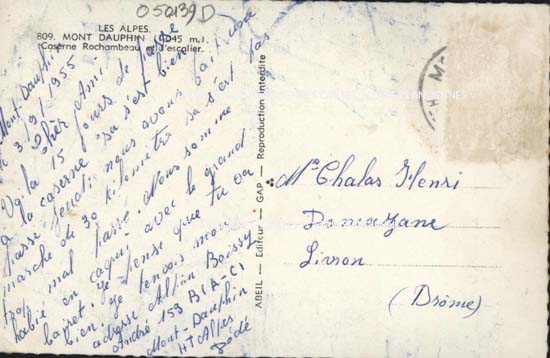 050139D
LES ALPES.
809. MONT DAUPHIN (1045 m.)
Caserne Rochambeau et l'escalier.
Mont-Dauphin
le 3/9/1955
Cher Ami
Voila 15 jours de passé
a la caserne sa s'est bien
passé jeudi nous avons fait une
marche de 30 kilomètre sa s'est pas
trop mal passé. Nous somme
habié en caqui avec le grand
baret. Je pense que tu va
bien. Je t'envois mon
adresse Alpin Boissy
André 159 BIA-CI
Mont-Dauphin
Ht Alpes
Dédé
ABEIL — Editeur — GAP — Reproduction interdite
Mr Chalas Henri
Domazane
Livron
(Drôme)